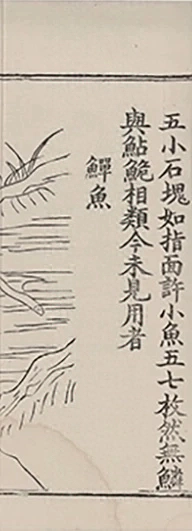 五小石塊如指面許小魚五七枚然無鱗
與鮎鮠相類今未見用者
鱓魚